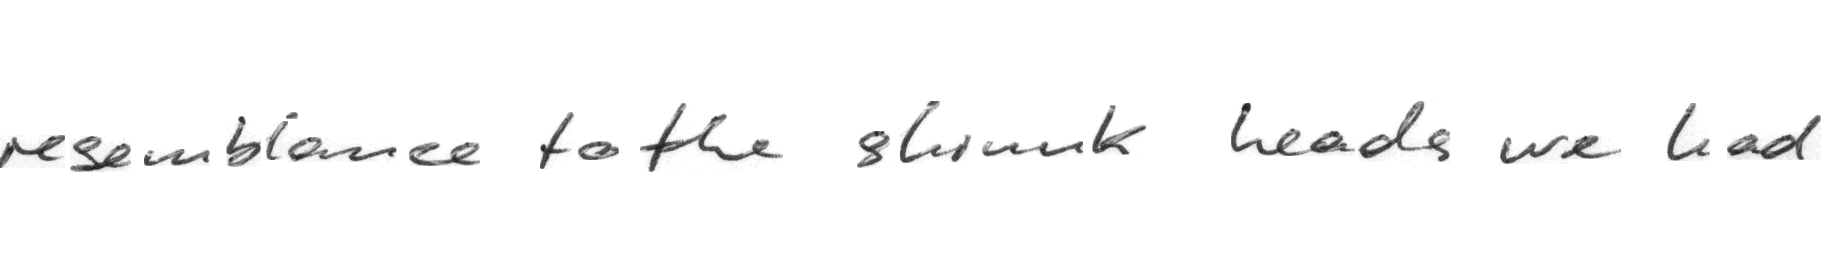 resemblance to the shrunk heads we had